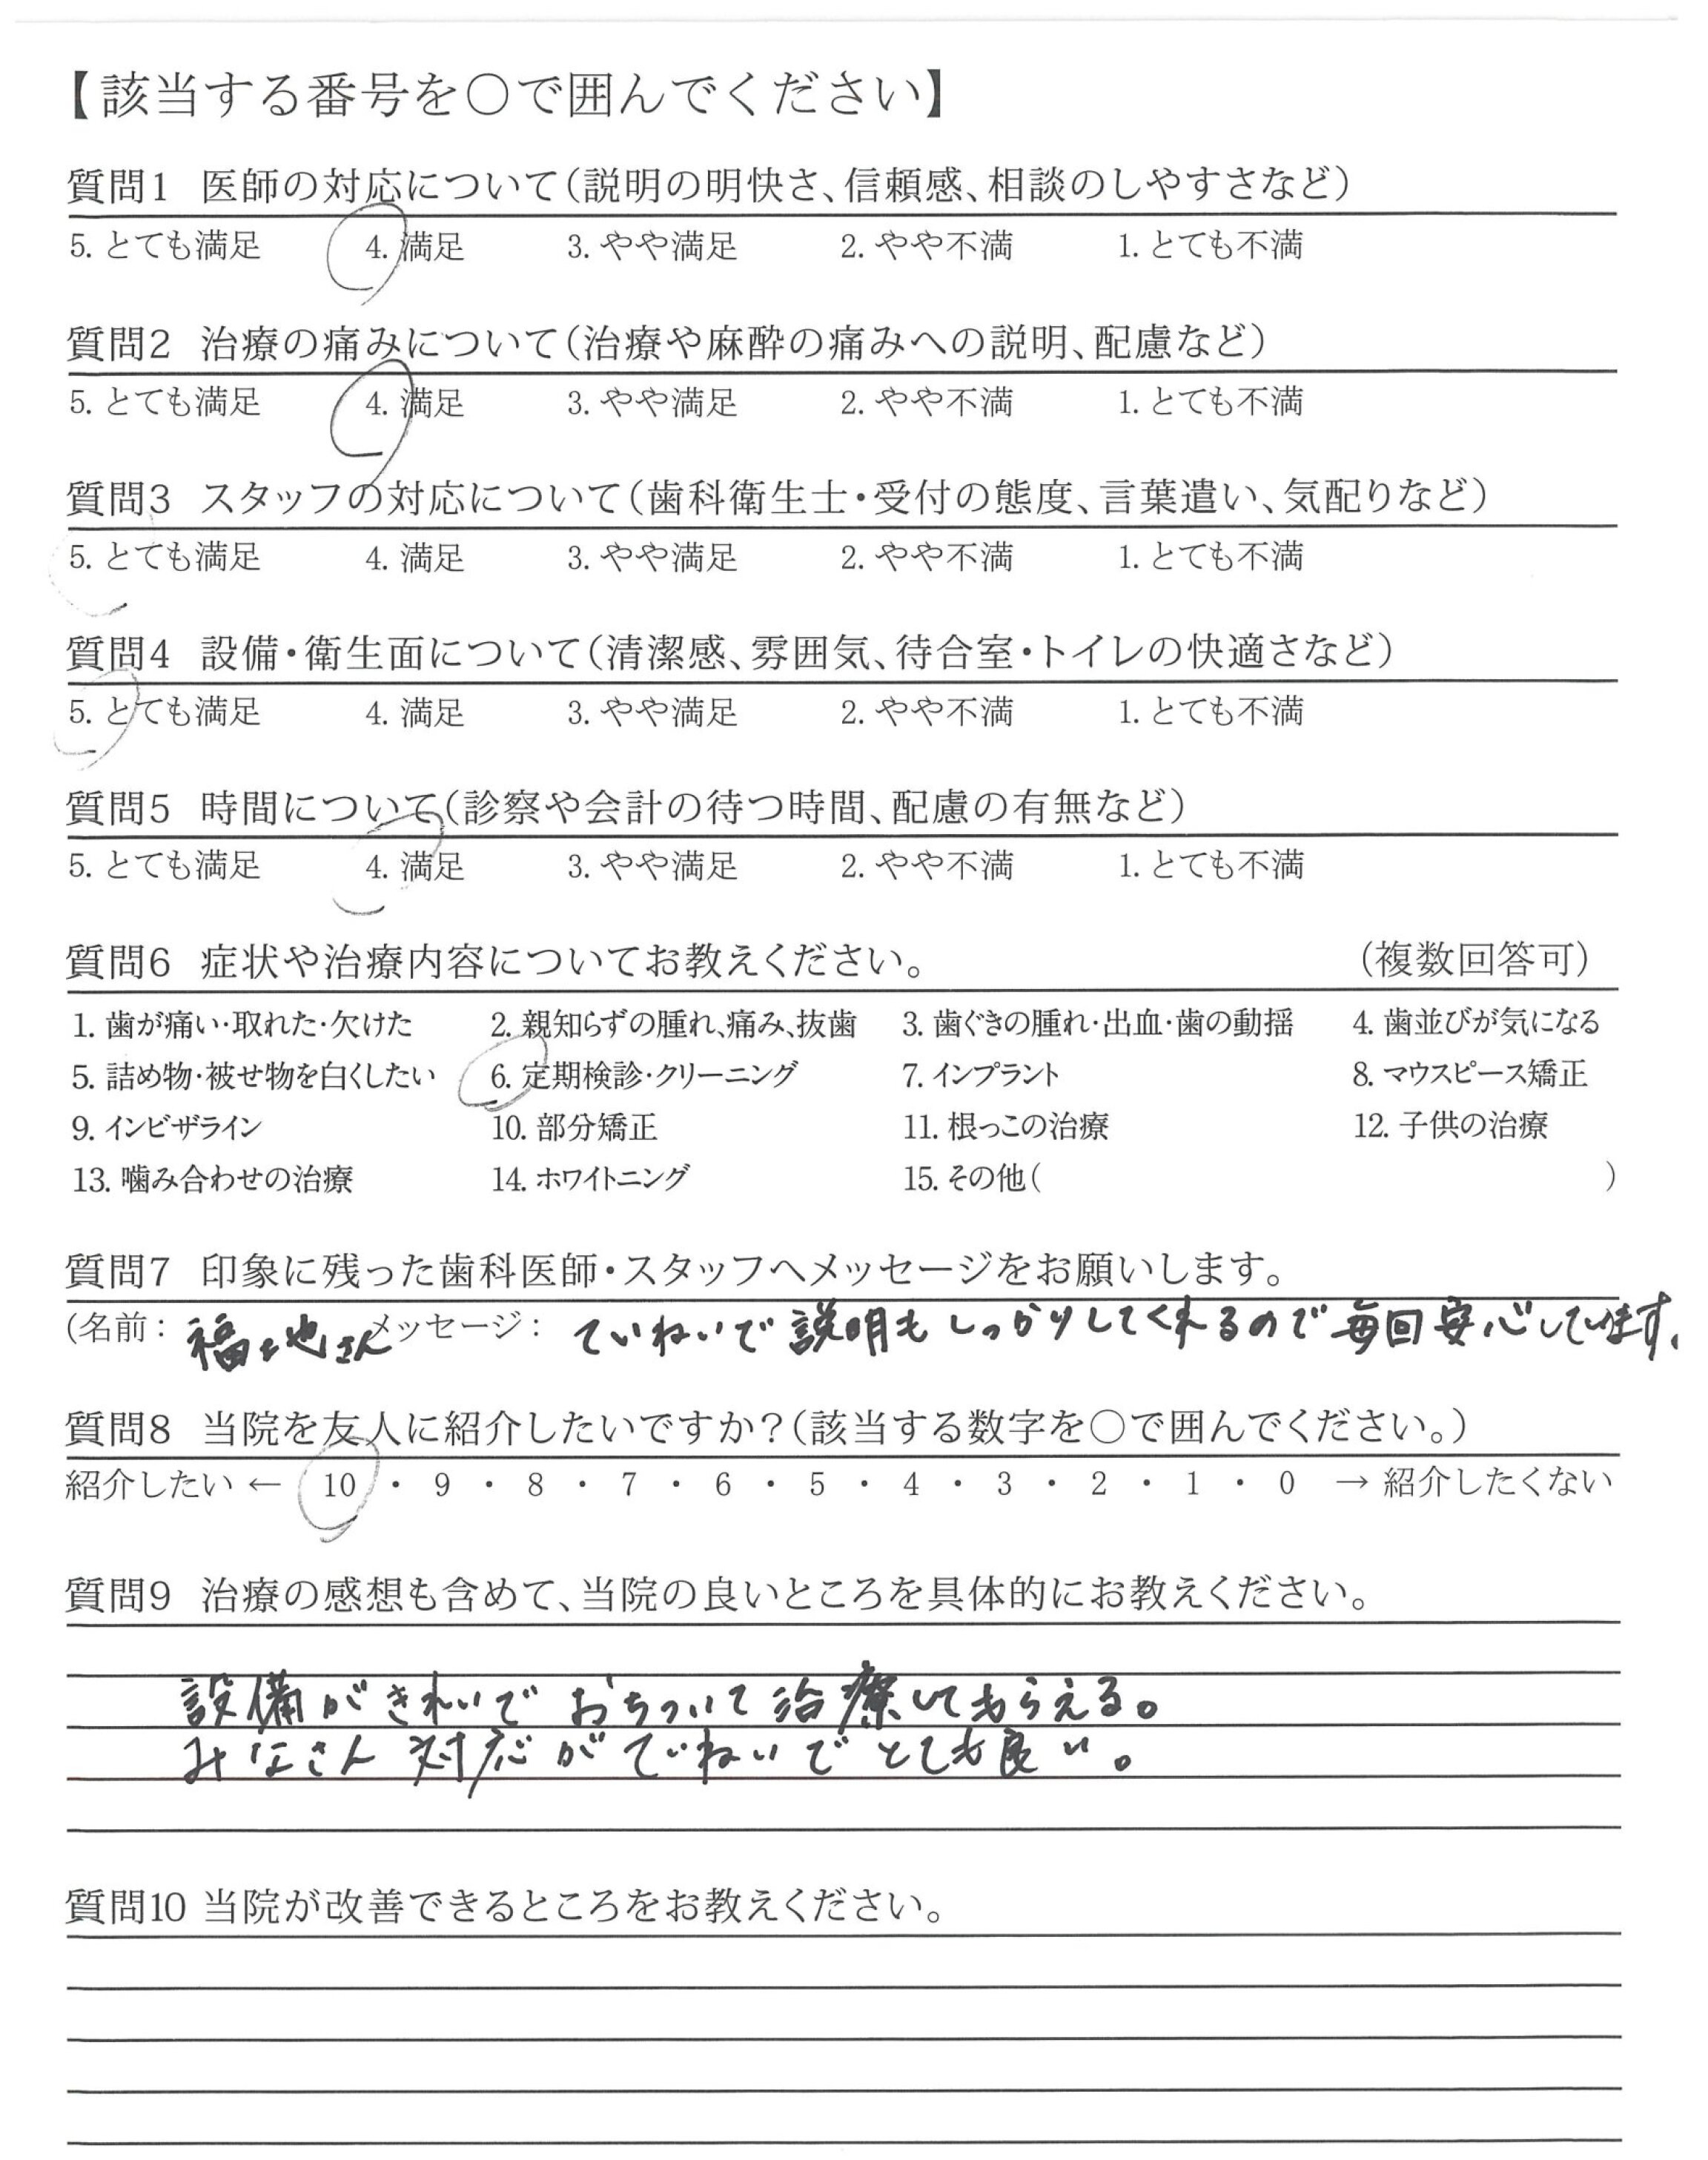 【該当する番号を〇で囲んでください】
質問1 医師の対応について(説明の明快さ、信頼感、相談のしやすさなど)
5. とても満足 4. 満足 3. やや満足 2. やや不満 1. とても不満
質問2 治療の痛みについて(治療や麻酔の痛みへの説明、配慮など)
5. とても満足 4. 満足 3. やや満足 2. やや不満 1. とても不満
質問3 スタッフの対応について(歯科衛生士・受付の態度、言葉遣い、気配りなど)
5. とても満足 4. 満足 3. やや満足 2. やや不満 1. とても不満
質問4 設備・衛生面について(清潔感、雰囲気、待合室・トイレの快適さなど)
5. とても満足 4. 満足 3. やや満足 2. やや不満 1. とても不満
質問5 時間について(診察や会計の待つ時間、配慮の有無など)
5. とても満足 4. 満足 3. やや満足 2. やや不満 1. とても不満
質問6 症状や治療内容についてお教えください。 (複数回答可)
1. 歯が痛い・取れた・欠けた 2. 親知らずの腫れ、痛み、抜歯 3. 歯ぐきの腫れ・出血・歯の動揺 4. 歯並びが気になる
5. 詰め物・被せ物を白くしたい 6. 定期検診・クリーニング 7. インプラント 8. マウスピース矯正
9. インビザライン 10. 部分矯正 11. 根っこの治療 12. 子供の治療
13. 噛み合わせの治療 14. ホワイトニング 15. その他( )
質問7 印象に残った歯科医師・スタッフへメッセージをお願いします。
(名前: さん メッセージ: ていねいで説明もしっかりしてくれるので毎回安心しています。
質問8 当院を友人に紹介したいですか?(該当する数字を〇で囲んでください。)
紹介したい ← 10 ・ 9 ・ 8 ・ 7 ・ 6 ・ 5 ・ 4 ・ 3 ・ 2 ・ 1 ・ 0 → 紹介したくない
質問9 治療の感想も含めて、当院の良いところを具体的にお教えください。
設備がきれいでおちついて治療してもらえる。
みなさん対応がていねいでとても良い。
質問10 当院が改善できるところをお教えください。